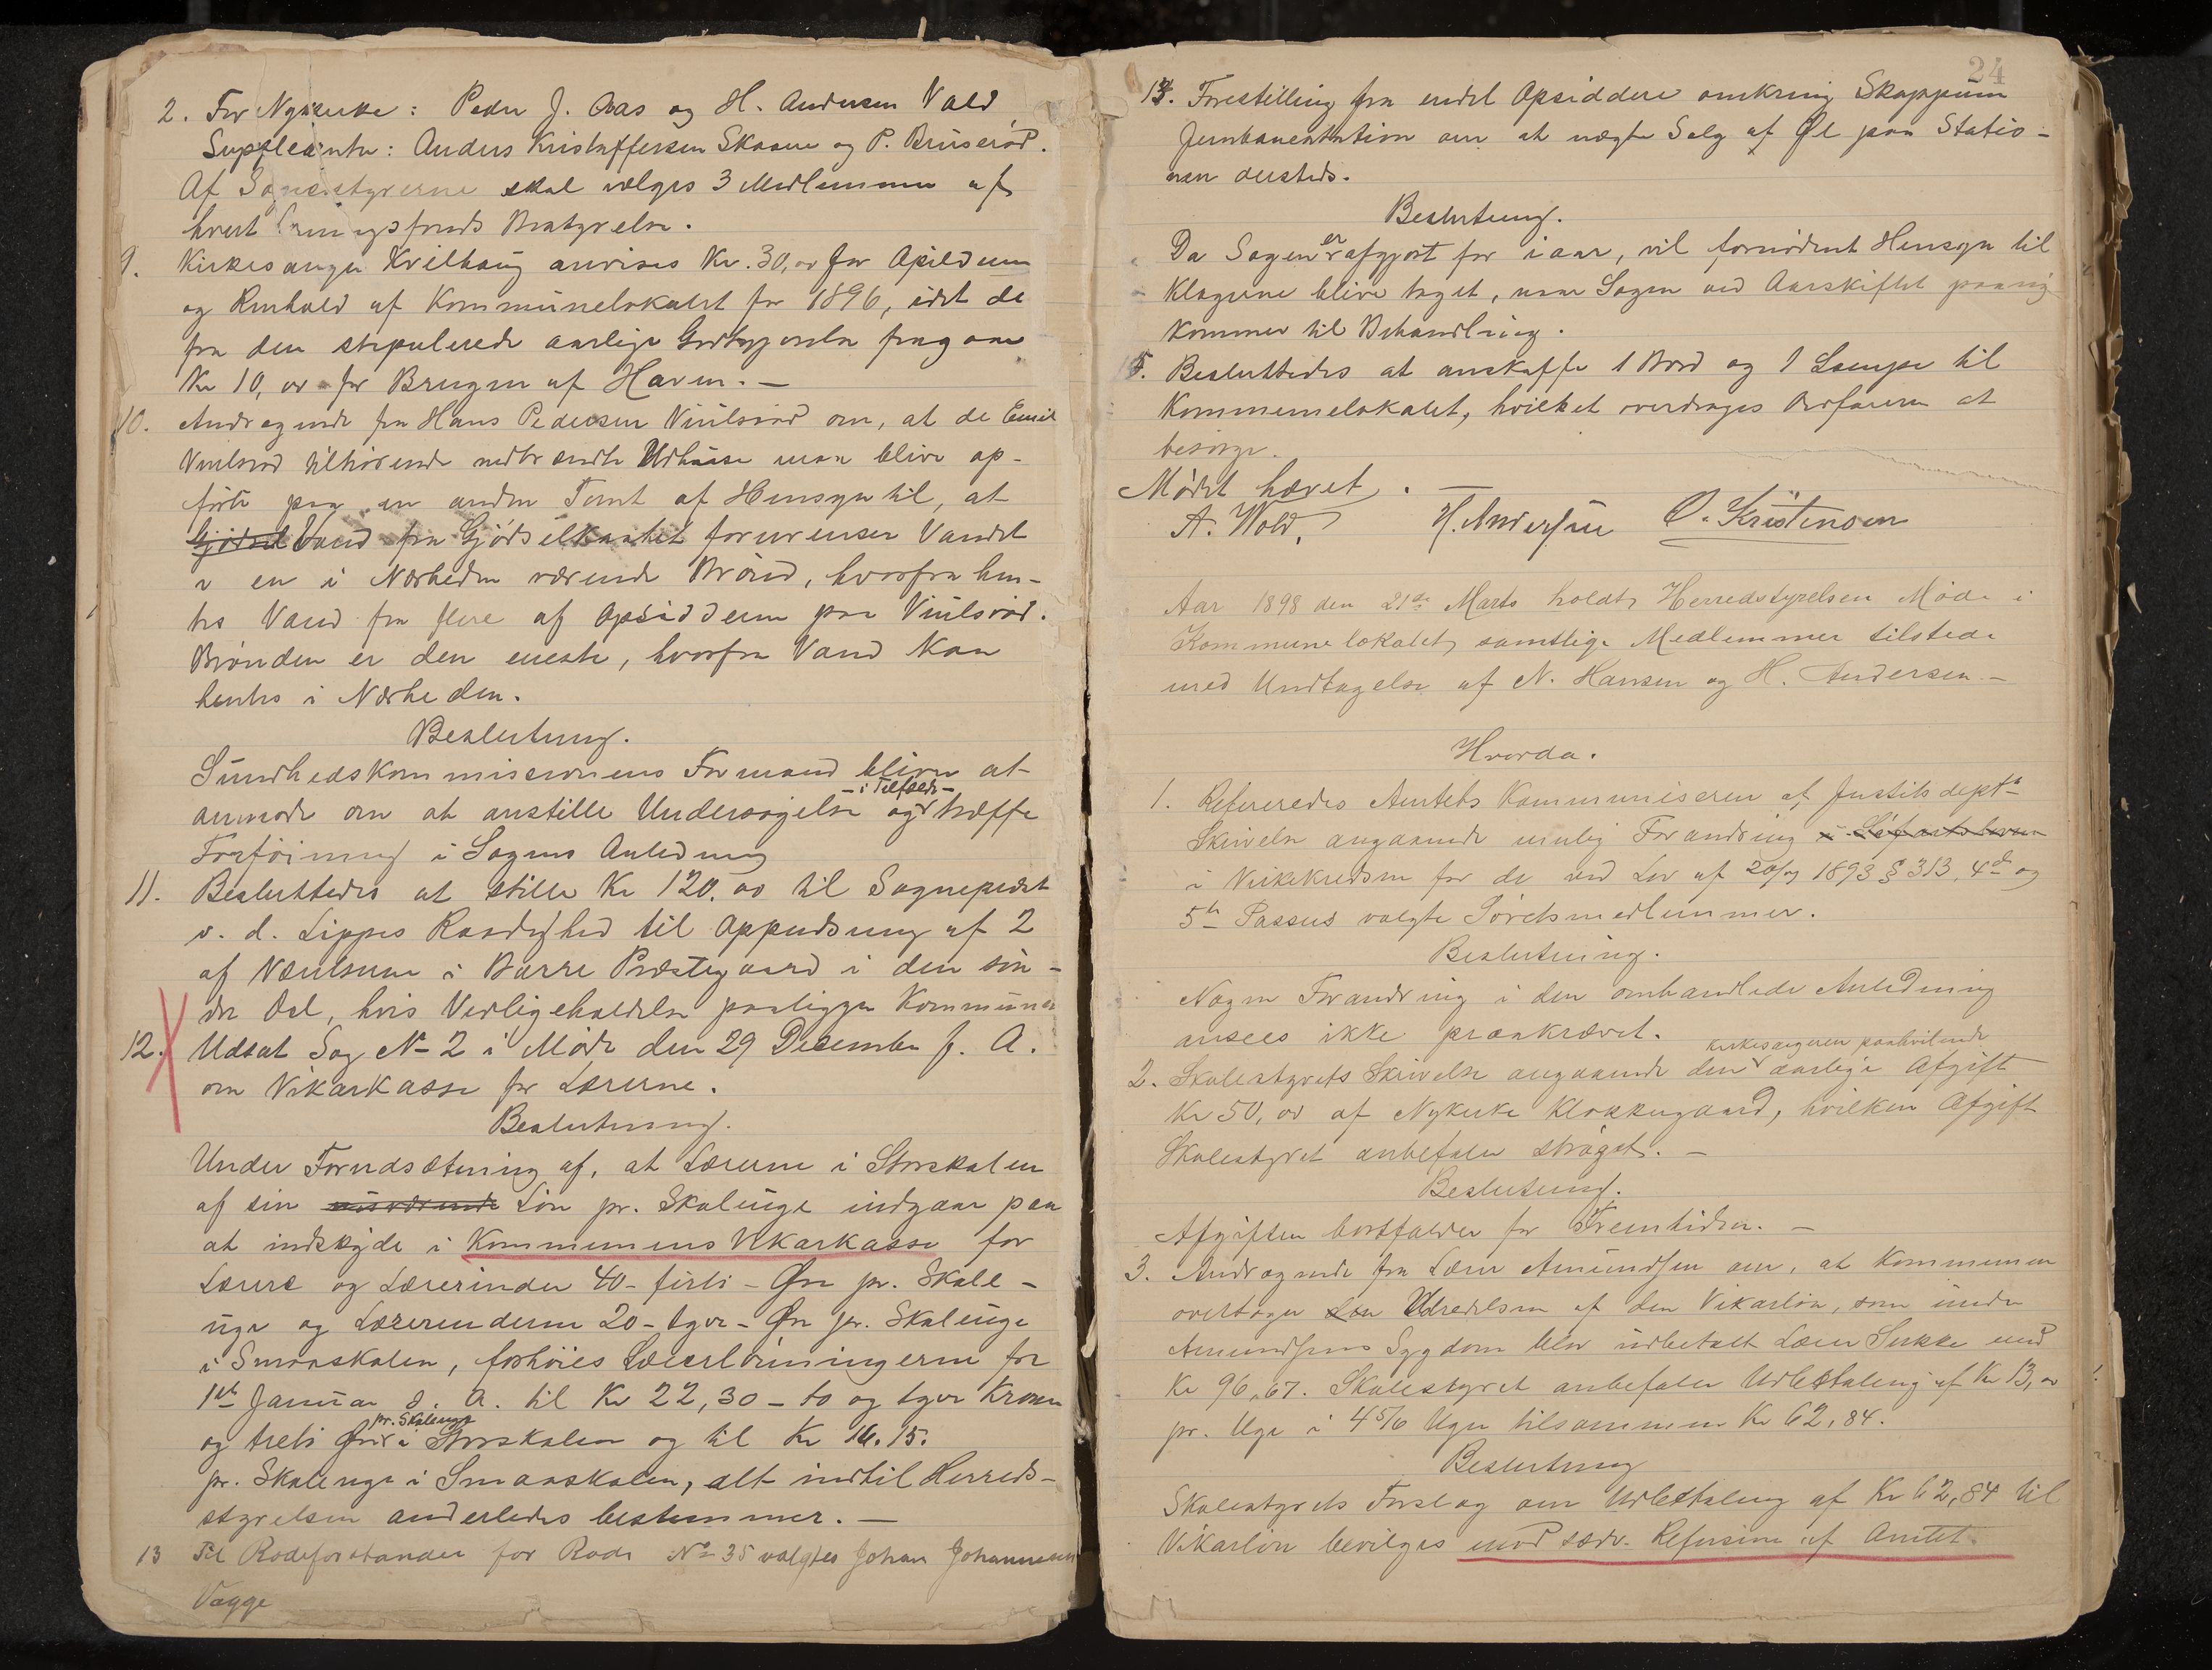 2. For Nykirke: Peder J. Aas og H. Andersen Vold
Suppleanter: Anders Kristoffersen Skaane og P. Bruserød.
Af Sognestyrerne skal vælges 3 Medlemmer af
hvert Læningsfonds Bestyrelse.
9. Kirkesanger Kvilhaug anvises Kr. 30,00 for Opildnen
og Renhold af Kommunelokalet for 1896, idet de
fra den stipulerede aarlige Godtgjørelse fragaar
Kr 10,00 for Brugen af Haven. —
10. Andragende fra Hans Pedersen Viulsrød om, at de Emil
Viulsrød tilhørende nedbrændte Udhuse maa blive op-
førte paa en anden Tomt af Hensyn til, at
Gjødsel Vand fra Gjødselkastet forurenser Vandet
i en i Nærheden værende Brønd, hvorfra hen-
tes Vand fra flere af Opsidderne paa Viulsrød.
Brønden er den eneste, hvorfra Vand kan
hentes i Nærheden.
Beslutning.
Sundhedskommissionens Formand bliver at
– i Tilfælde –
anmode om at anstille Undersøgelse og træffe
Forføining i Sagens Anledning
11. Besluttedes at stille Kr 120.00 til Sognepræst
v. d. Lippes Raadighed til Oppudsning af 2
af Værelserne i Borre Præstegaard i den søn-
dre Del, hvis Vedligeholdelse paaligger Kommunen
12. Udsat Sag No 2 i Møde den 29 Decembr f. A.
om Vikarkasse for Lærerne.
Beslutning.
Under Forudsætning af, at Lærerne i Storskolen
af sin nuværende Løn pr. Skoleuge indgaar paa
at indskyde i Kommunens Vikarkasse for
Lærere og Lærerinder 40 - firti - Øre pr. Skole-
uge og Lærerinderne 20 - tyve - Øre pr. Skoleuge
i Smaaskolen, forhøies Lærerlønningerne fra
1ste Januar d. A. til Kr 22,30 - to og tyve Kroner
pr. Skoleuge
og treti Øre i Storskolen og til Kr 16.15.
pr. Skoleuge i Smaaskolen, alt indtil Herreds-
styrelsen anderledes bestemmer. —
13 Til Rodeforstander for Rode No 35 valgtes Johan Johannesen
Vagge
24
14. Forestilling fra endel Opsiddere omkring Skoppum
Jernbanestation om at nægte Salg af Øl paa Statio-
nen dersteds.
Beslutning.
er
Da Sagen afgjort for iaar, vil fornødent Hensyn til
Klagerne blive taget, naar Sagen ved Aarskiftet paany
kommer til Behandling.
15. Besluttedes at anskaffe 1 Bord og 1 Lampe til
Kommunelokalet, hvilket overdrages Ordføreren at
besørge.
Mødet hævet. —
A. Wold, H. Andersen O. Kristensen
Aar 1898 den 21de Marts holdt Herredstyrelsen Møde i
Kommunelokalet, samtlige Medlemmer tilstede
med Undtagelse af N. Hansen og H. Andersen. —
Hvorda.
1. Refereredes Amtets Kommuniseren af Justitsdepts
Skrivelse angaaende mulig Forandring i
i Virkekredsen for de ved Lov af 1893 § 313, 4de og
5te Passus valgte Søretsmedlemmer.
Beslutning.
Nogen Forandring i den omhandlede Anledning
ansees ikke paakrævet.
kirkesangeren paahvilende
2. Skolestyrets Skrivelse angaaende den aarlige Afgift
Kr 50,00 af Nykirke Klokkergaard, hvilken Afgift
Skolestyret anbefaler strøget. —
Beslutning.
Afgiften bortfalder for Fremtiden. —
3. Andragende fra Lærer Amundsen om, at Kommunen
overtager den Udredelsen af den Vikarløn, som under
Amundsens Sygdom blev udbetalt Lærer Sukke med
Kr 96,67. Skolestyret anbefaler Udbetaling af Kr 13,00
pr. Uge i 4 5/6 Uger tilsammen Kr 62,84.
Beslutning
Skolestyrets Forslag om Udbetaling af Kr 62,84 til
Vikarløn bevilges mod sædv. Refusion af Amtet.